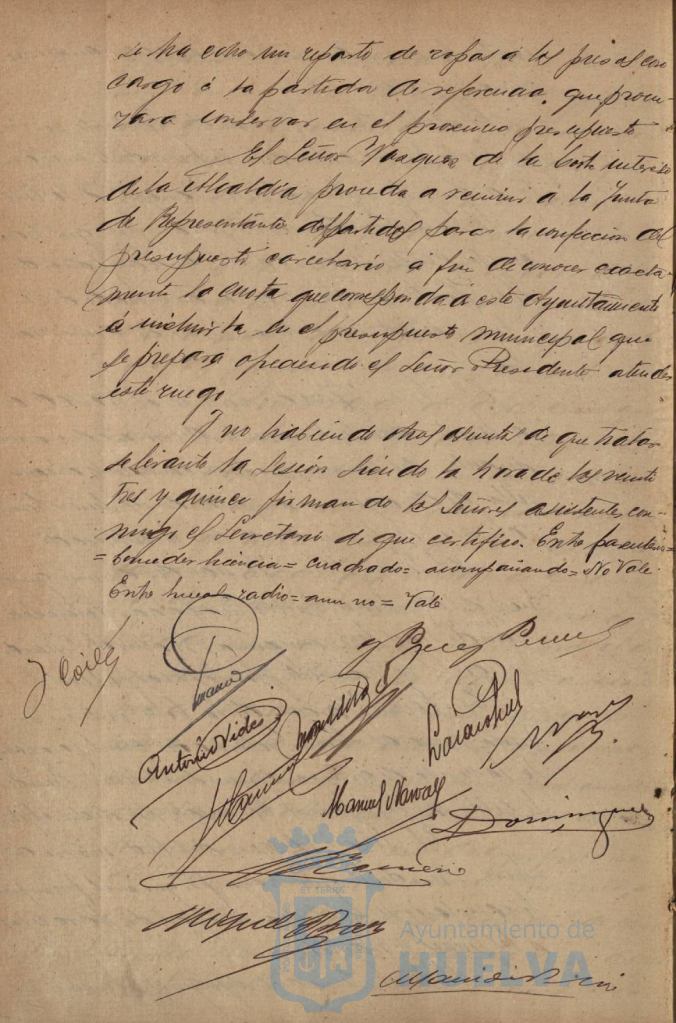 se ha echo un reparto de ropas á los presos con
cargo á la partida de referencia, que procu-
rara conservar en el proximo presupuesto
El Señor Vazquez de la Corte interesó
de la Alcaldia proceda a reunir a la Junta
de Representante del partido para la confección del
presupuesto carcelario á fin de conocer exacta-
mente la cuota que corresponda á este Ayuntamiento
é incluirla en el presupuesto municipal que
se prepara ofreciendo el Señor Presidente atender
este ruego
Y no habiendo otros asuntos de que tratar
se levantó la sesión siendo la hora de las veinte
tres y quince firmando los Señores asistentes con-
migo el Secretario de que certifico. Entre parentesis=
= conceder licencia = cuadrado = acompañando = No Vale
Entre lineas radio = aun no = Vale
Antonio Vides
Manuel Narvae
Dominguez
Miguel
ET TERRE
Ayuntamiento de
HUELVA